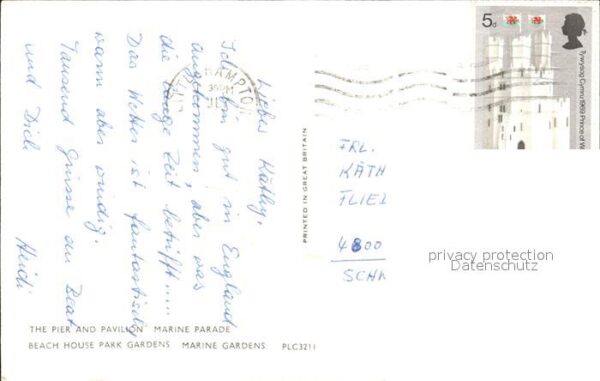 Liebes Käthy,
Ich bin gut in England
angekommen, aber was
die lange Zeit betrifft....
Das Wetter ist fantastisch
warm aber windig.
Tausend Grüsse an Beat
und Dich
Heidi
HAMPTON
PRINTED IN GREAT BRITAIN
5d
Tywysog Cymru 1969 Prince of Wa
FRL.
KÄTH
FLIE
4800
SCHA
privacy protection
Datenschutz
THE PIER AND PAVILION MARINE PARADE
BEACH HOUSE PARK GARDENS MARINE GARDENS PLC3211